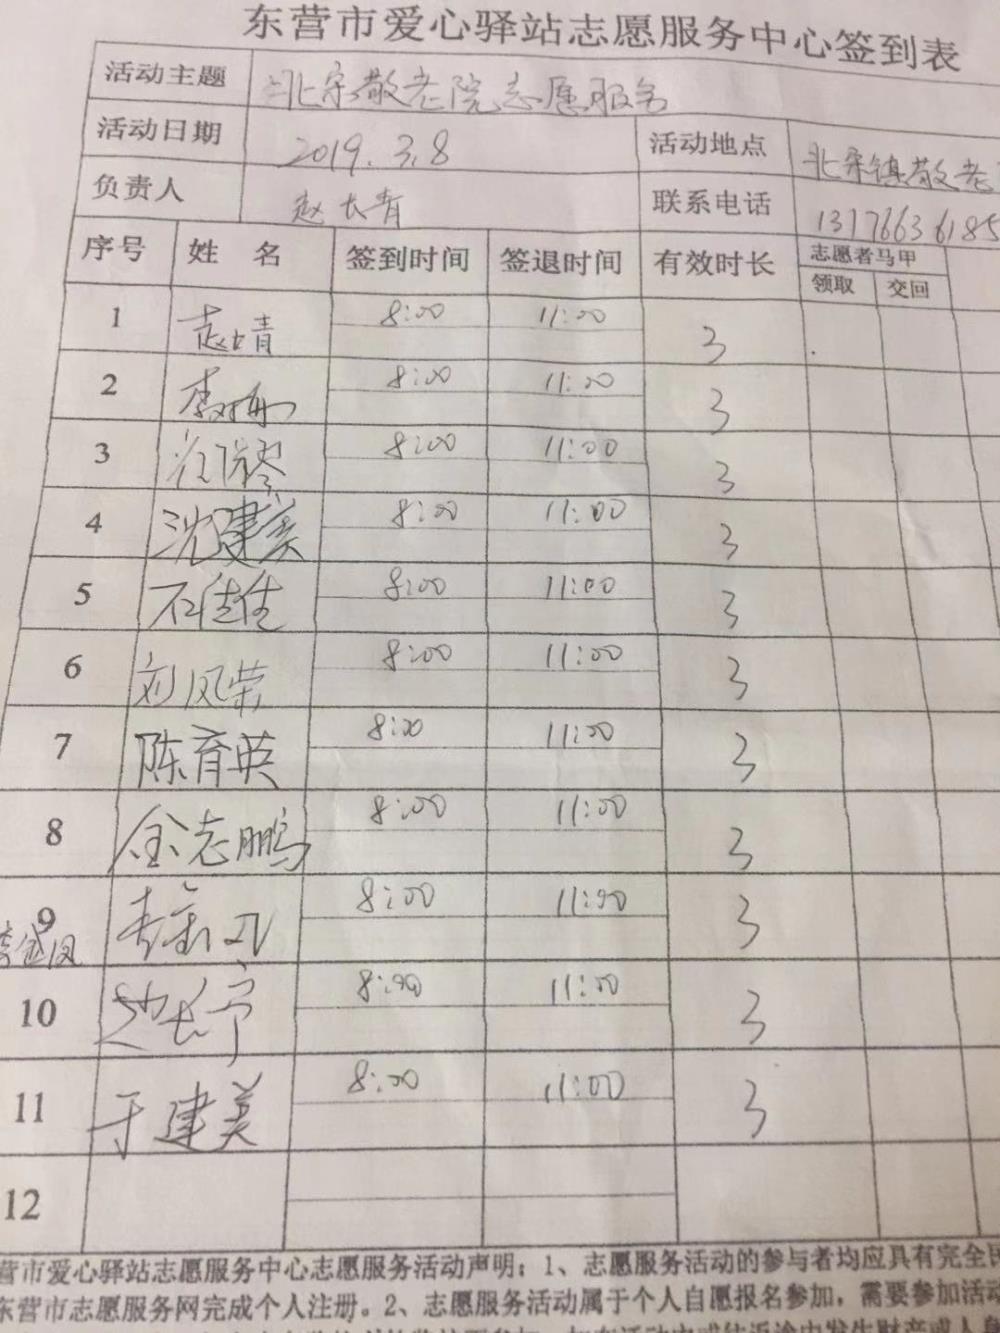 东营市爱心驿站志愿服务中心签到表
活动主题 北宋敬老院志愿服务
活动日期 2019.3.8 活动地点 北宋镇敬老
负责人 赵长青 联系电话 13176636185
序号 姓 名 签到时间 签退时间 有效时长 志愿者马甲
领取 交回
1 8:00 11:00 3
2 8:00 11:00 3
3 8:00 11:00 3
4 沈建美 8:00 11:00 3
5 石佳佳 8:00 11:00 3
6 刘风荣 8:00 11:00 3
7 陈育英 8:00 11:00 3
8 金志鹏 8:00 11:00 3
9 8:00 11:00 3
10 赵长宁 8:00 11:00 3
11 于建美 8:00 11:00 3
12
营市爱心驿站志愿服务中心志愿服务活动声明：1、志愿服务活动的参与者均应具有完全
东营市志愿服务网完成个人注册。2、志愿服务活动属于个人自愿报名参加，需要参加活动